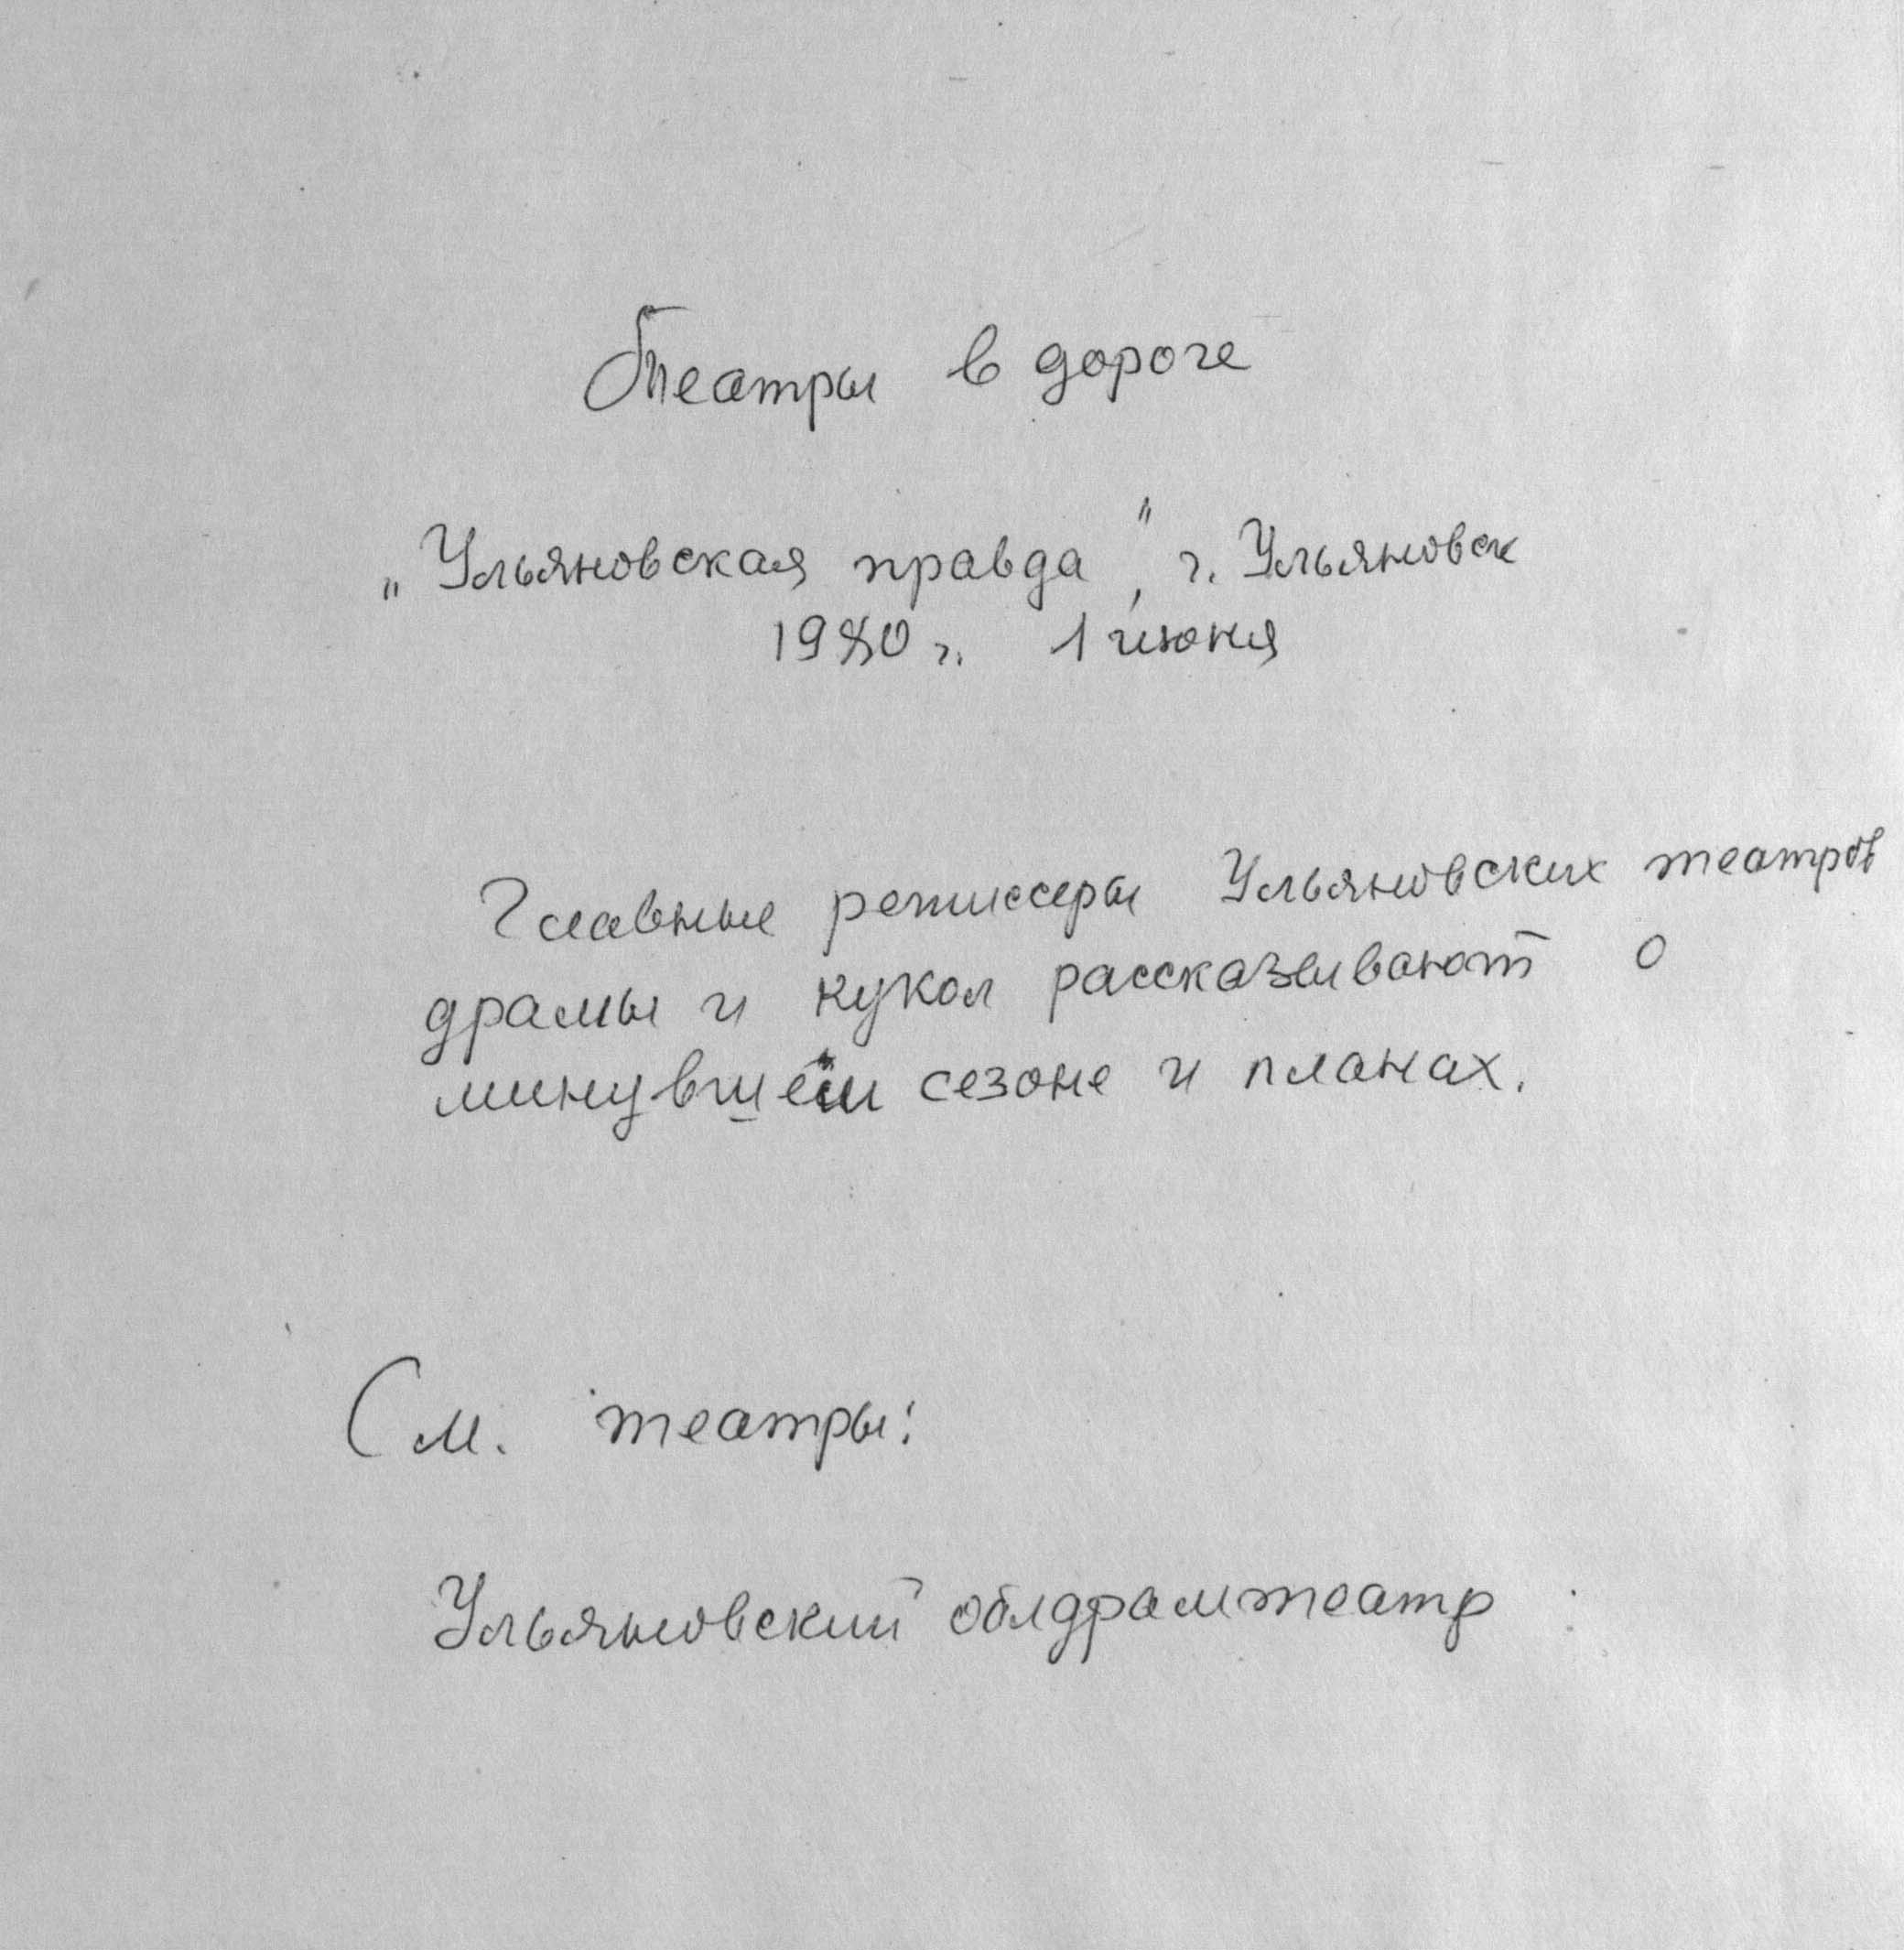 Театры в дороге
„Ульяновская правда", г. Ульяновск
1980 г. 1 июня
Главные режиссеры Ульяновских театров
драмы и кукол рассказывают о
минувшем сезоне и планах.
См. театры:
Ульяновский облдрамтеатр